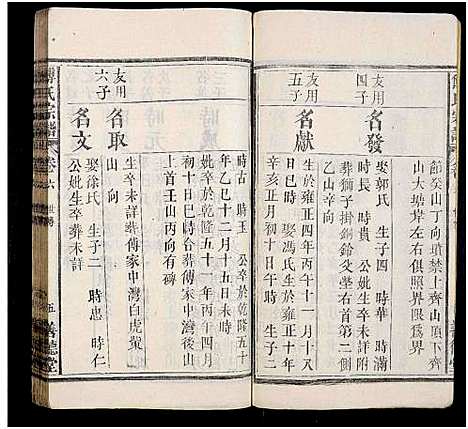 節癸山丁向墳禁上齊山頂下齊
山大塘岸左右俱以界限為界
友用
四子
名發
娶郭氏 生子四 時華 時滿
時長 時貴 公妣生卒未詳附
葬獅子掛銅鈴交塋右首第二側
乙山辛向
友用
五子
名獻
生於雍正四年丙午十一月十八
辛亥正月初十日午時 生子二
時古 時玉 公卒於乾隆五十
年乙巳十二月十五日未時
妣卒於乾隆五十一年丙午四月
初十日巳時合葬傅家中灣後山
上首壬山丙向有碑
友用
六子
名取
生卒未詳葬傅家中灣白虎嘴
山 向
名文
娶徐氏 生子二 時忠 時仁
公妣生卒葬未詳
傅氏宗譜
卷六
五
善德堂